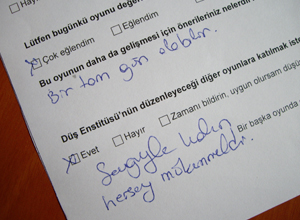 Hayır
Lütfen bugünkü oyunu değe
Çok eğlendim
Eğlendim
Bu oyunun daha da gelişmesi için önerileriniz nelerdir
Bir tam gün olabilir.
Düş Enstitüsü'nün düzenleyeceği diğer oyunlara katılmak iste
Evet
Hayır
Zamanı bildirin, uygun olursam düşü
Bir başka oyunda
Sevgiyle kalın
herşey mükemmeldi.